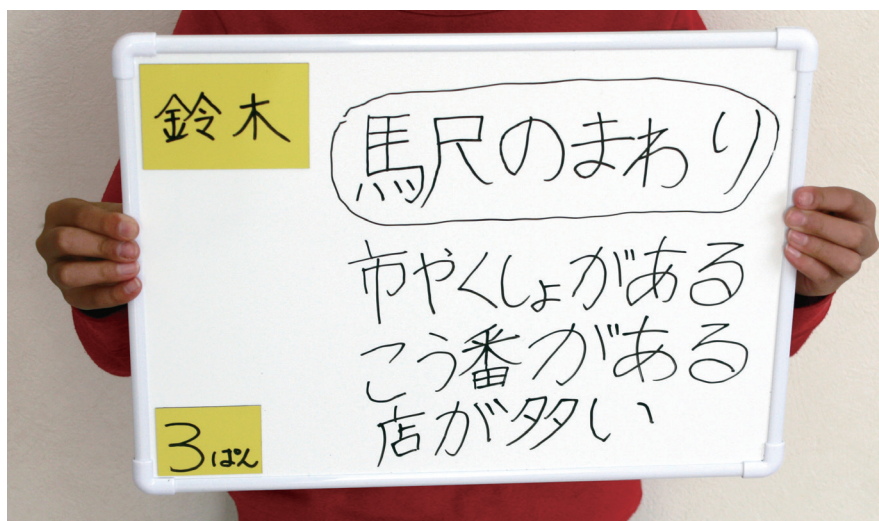 鈴木
駅のまわり
市やくしょがある
こう番がある
店が多い
3ぱん